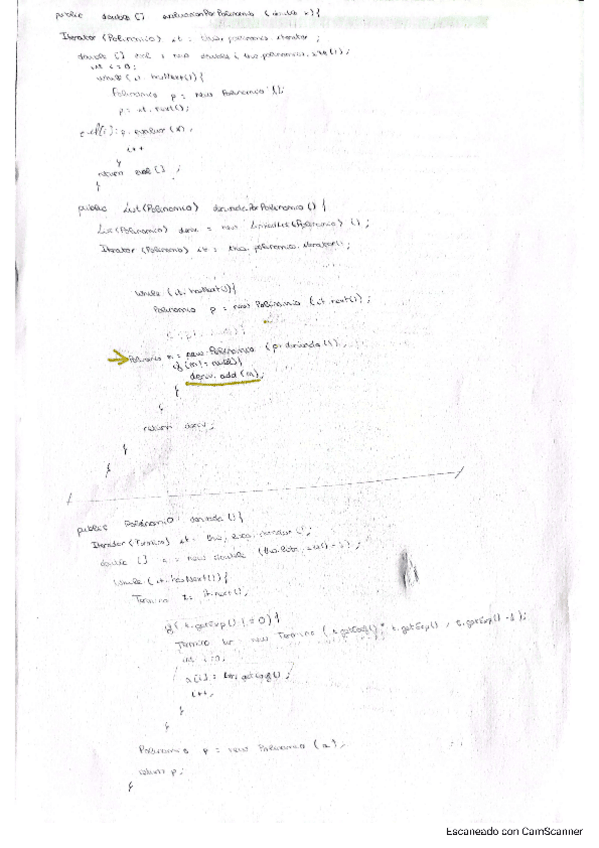 public double [] evaluacionPorPolinomio (double x) {
Iterator (Polinomio) it = this.polinomios.iterator;
double [] eval = new double [this.polinomios.size()];
int i=0;
while (it.hasNext()){
Polinomio p = new Polinomio ();
p = it.next();
eval[i] = p.evaluar (x),
i++
}
return eval [] ;
}
public List(Polinomio) derivadaPorPolinomio () {
List(Polinomio) deriv = new LinkedList(Polinomio) ();
Iterator (Polinomio) it = this.polinomios.iterator();
while (it.hasNext()){
Polinomio p = new Polinomio (it.next();
Polinomio m = new Polinomio (p.derivada(),
if (m != null){
deriv.add(m);
}
}
return deriv;
}
}
public Polinomio derivada () {
Iterator (Termino) it = this. .iterator ();
double [] a = new double (this.
while (it.hasNext()){
Termino t = it.next(),
if( t.getExp() != 0){
Termino = new Termino (t.getCoef() * t.getExp() , t.getExp() -1);
int i=0,
a[i] = .getCoef();
i++,
}
}
Polinomio p = new Polinomio (a),
return p;
}
Escaneado con CamScanner